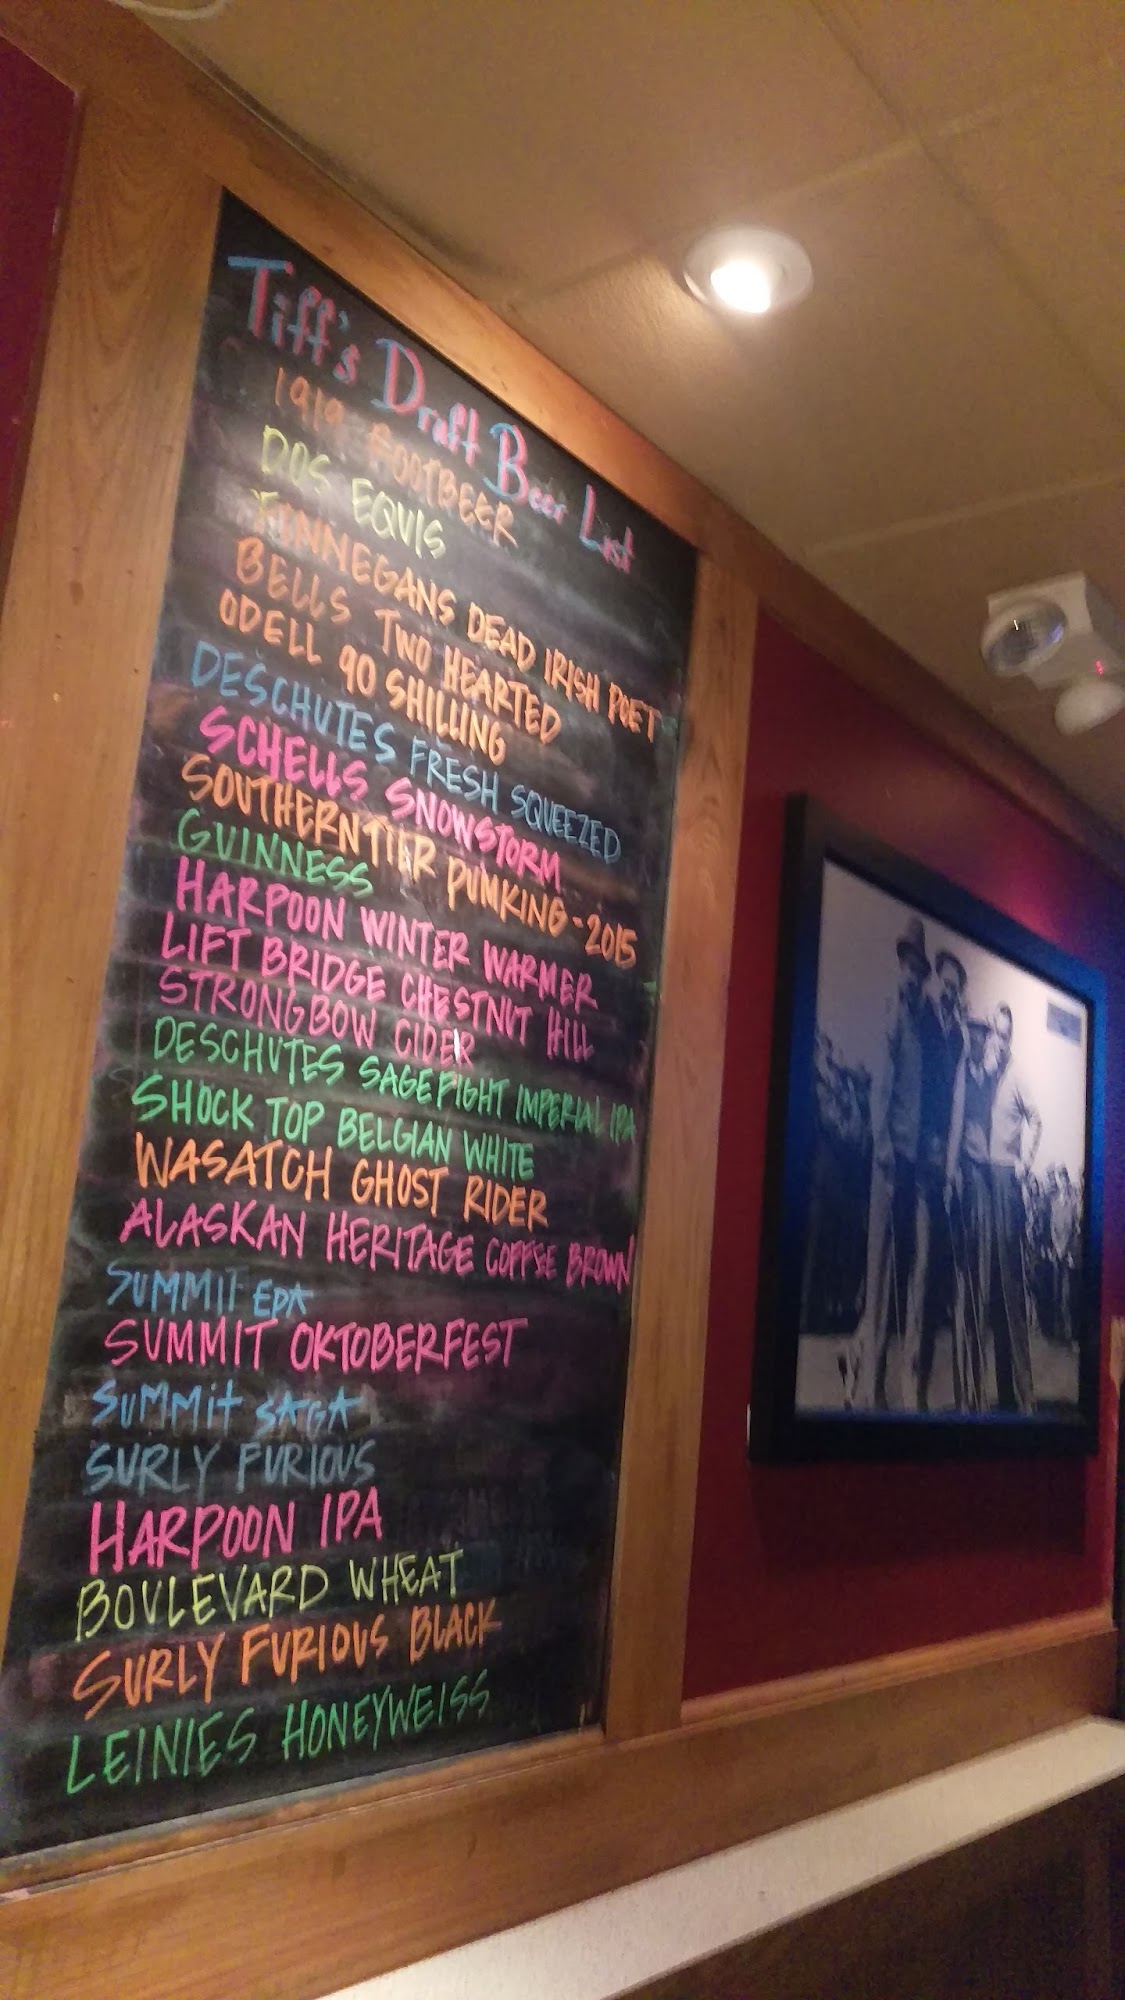 Tiff's Draft Beer List
1919 ROOTBEER
DOS EQUIS
FINNEGANS DEAD IRISH POET
BELLS TWO HEARTED
ODELL 90 SHILLING
DESCHUTES FRESH SQUEEZED
SCHELLS SNOWSTORM
SOUTHERN TIER PUMKING - 2015
GUINNESS
HARPOON WINTER WARMER
LIFT BRIDGE CHESTNUT HILL
STRONGBOW CIDER
DESCHUTES SAGEFIGHT IMPERIAL IPA
SHOCK TOP BELGIAN WHITE
WASATCH GHOST RIDER
ALASKAN HERITAGE COFFEE BROWN
SUMMIT EPA
SUMMIT OKTOBERFEST
SUMMIT SAGA
SURLY FURIOUS
HARPOON IPA
BOULEVARD WHEAT
SURLY FURIOUS BLACK
LEINIES HONEYWEISS